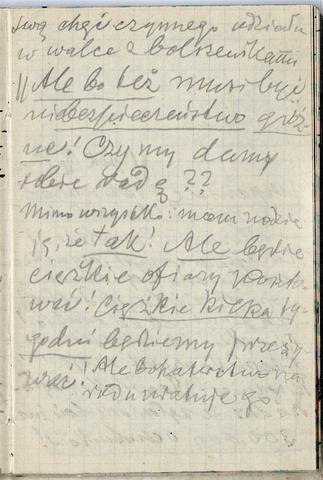 swą chęć czynnego udziału
w walce z bolszewikami
Ale bo też musi być
niebezpieczeństwo groź-
ne! Czy my damy
sobie radę??
Mimo wszystko: mam nadzieję
że tak! Ale będzie
ciężkie ofiary koszto-
wać! Ciężkie kilka ty-
godni będziemy przeży-
wać! Ale bohaterstwo na-
rodu uratuje go